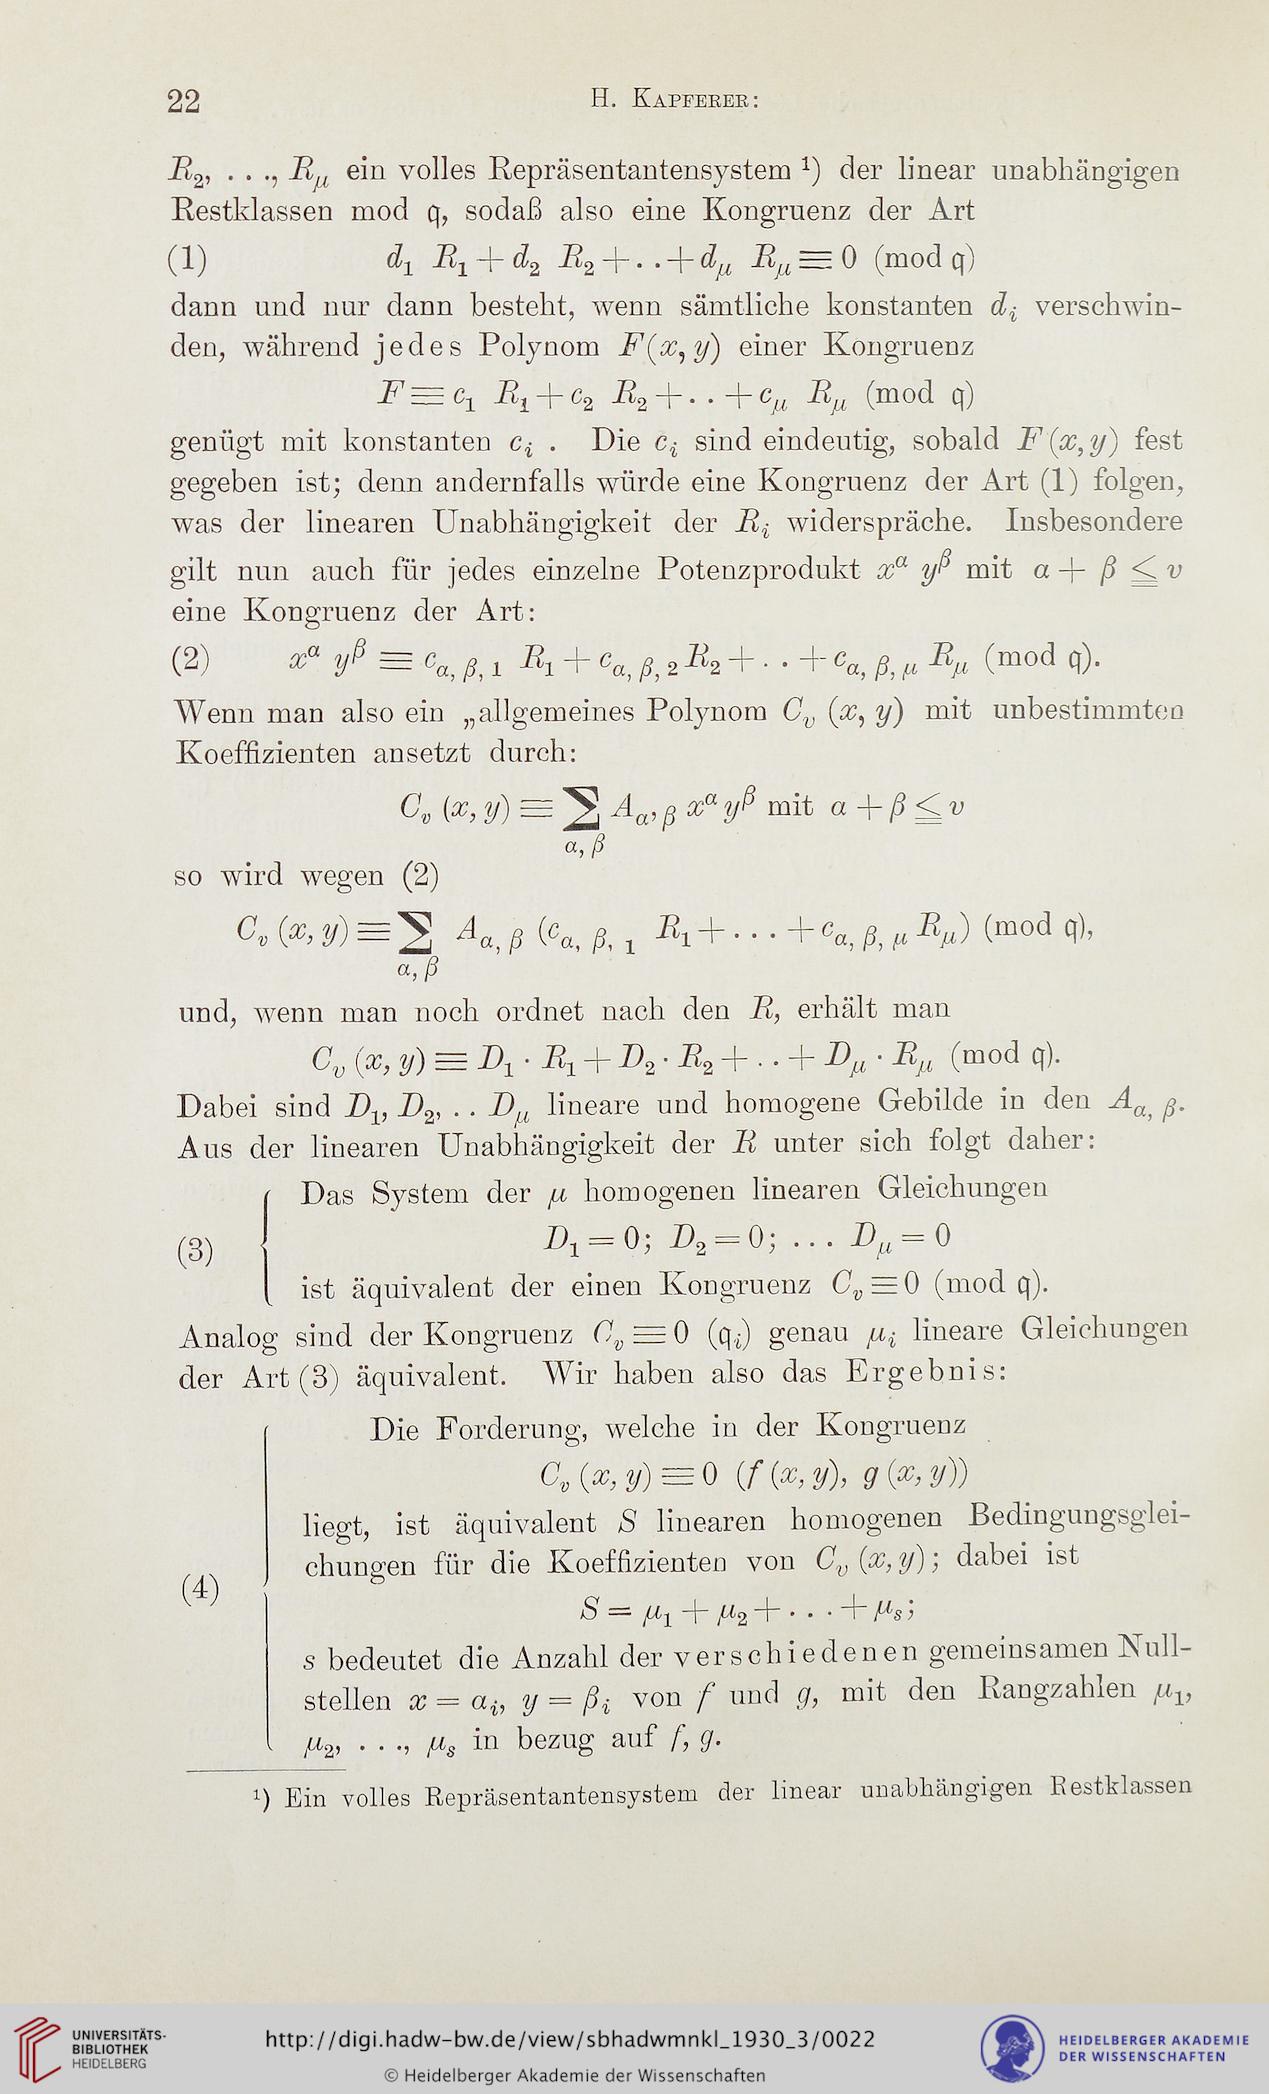 22 H. KAPFERER:
R₂, . . ., R_μ ein volles Repräsentantensystem ¹) der linear unabhängigen
Restklassen mod 𝔮, sodaß also eine Kongruenz der Art
(1) d₁ R₁ + d₂ R₂ + . . + d_μ R_μ ≡ 0 (mod 𝔮)
dann und nur dann besteht, wenn sämtliche konstanten d_i verschwin-
den, während jedes Polynom F(x, y) einer Kongruenz
F ≡ c₁ R₁ + c₂ R₂ + . . + c_μ R_μ (mod 𝔮)
genügt mit konstanten c_i . Die c_i sind eindeutig, sobald F(x, y) fest
gegeben ist; denn andernfalls würde eine Kongruenz der Art (1) folgen,
was der linearen Unabhängigkeit der R_i widerspräche. Insbesondere
gilt nun auch für jedes einzelne Potenzprodukt x^α y^β mit α + β ≦ ν
eine Kongruenz der Art:
(2) x^α y^β ≡ c_{α, β, 1} R₁ + c_{α, β, 2} R₂ + . . + c_{α, β, μ} R_μ (mod 𝔮).
Wenn man also ein „allgemeines Polynom C_ν (x, y) mit unbestimmten
Koeffizienten ansetzt durch:
C_ν (x, y) ≡ ∑_{α, β} A_{α, β} x^α y^β mit α + β ≦ ν
so wird wegen (2)
C_ν (x, y) ≡ ∑_{α, β} A_{α, β} (c_{α, β, 1} R₁ + . . . + c_{α, β, μ} R_μ) (mod 𝔮),
und, wenn man noch ordnet nach den R, erhält man
C_ν (x, y) ≡ D₁ · R₁ + D₂ · R₂ + . . + D_μ · R_μ (mod 𝔮).
Dabei sind D₁, D₂, . . D_μ lineare und homogene Gebilde in den A_{α, β}.
Aus der linearen Unabhängigkeit der R unter sich folgt daher:
Das System der μ homogenen linearen Gleichungen
(3) D₁ = 0; D₂ = 0; . . . D_μ = 0
ist äquivalent der einen Kongruenz C_ν ≡ 0 (mod 𝔮).
Analog sind der Kongruenz C_ν ≡ 0 (𝔮_i) genau μ_i lineare Gleichungen
der Art (3) äquivalent. Wir haben also das Ergebnis:
Die Forderung, welche in der Kongruenz
C_ν (x, y) ≡ 0 (f (x, y), g (x, y))
liegt, ist äquivalent S linearen homogenen Bedingungsglei-
chungen für die Koeffizienten von C_ν (x, y); dabei ist
(4) S = μ₁ + μ₂ + . . . + μ_s;
s bedeutet die Anzahl der verschiedenen gemeinsamen Null-
stellen x = α_i, y = β_i von f und g, mit den Rangzahlen μ₁,
μ₂, . . ., μ_s in bezug auf f, g.
¹) Ein volles Repräsentantensystem der linear unabhängigen Restklassen
UNIVERSITÄTS-
BIBLIOTHEK
HEIDELBERG
http://digi.hadw-bw.de/view/sbhadwmnkl_1930_3/0022
© Heidelberger Akademie der Wissenschaften
HEIDELBERGER AKADEMIE
DER WISSENSCHAFTEN